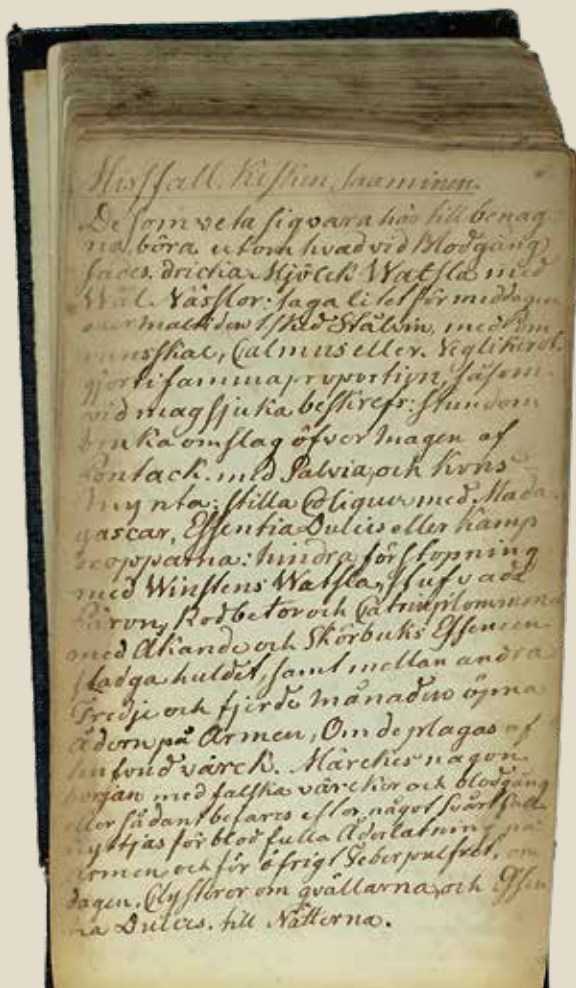 Missfall. Kesken saaminen.
De som veta sig vara här till benäg-
na, böra utom hvad vid Blodgång
sades, dricka Mjölck Watsla med
Wäl. Nässlor: taga litet för middagen
eller maltiden 1 sked Stålvin, med Pom
ransskal, Calmus eller
gjort i samma proportijn, såsom
vid magsjuka beskrefs: stundom
bruka omslag öfver Magen af
Pontack. med Salvia, och Krus
Mynta: stilla Coliquer med Mada-
gascar, Essentia Dulcis eller Kamp
dropparna: hindra förstopning
med Winstens Watsla, stufvade
Päron, Rödbetor och Catrinplommon
med Åkande och Skörbuks Essencen
stadga huldet, samt mellan andra
Tredje och fjerde Månaden öpna
Ådern på Armen, Om de plågas af
värck. Märckes någon
början med falska värckar och blodgång
eller sådant befaras efter något svårt fall
nyttjas för blodfulla Åderlåtning på
armen och för öfrigt Feberpulfret, om
dagen, Clysteror om qvällarna, och Essen
tia Dulcis. till Nätterna.